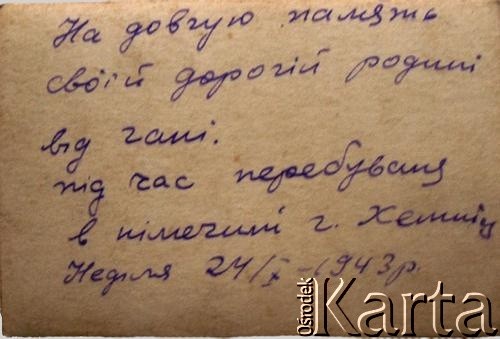 На довгую память
своїй дорогій родині
від гані.
під час перебуваня
в німечині г. Хемніц
Неділя 24/X-1943р.
Ośrodek
Karta